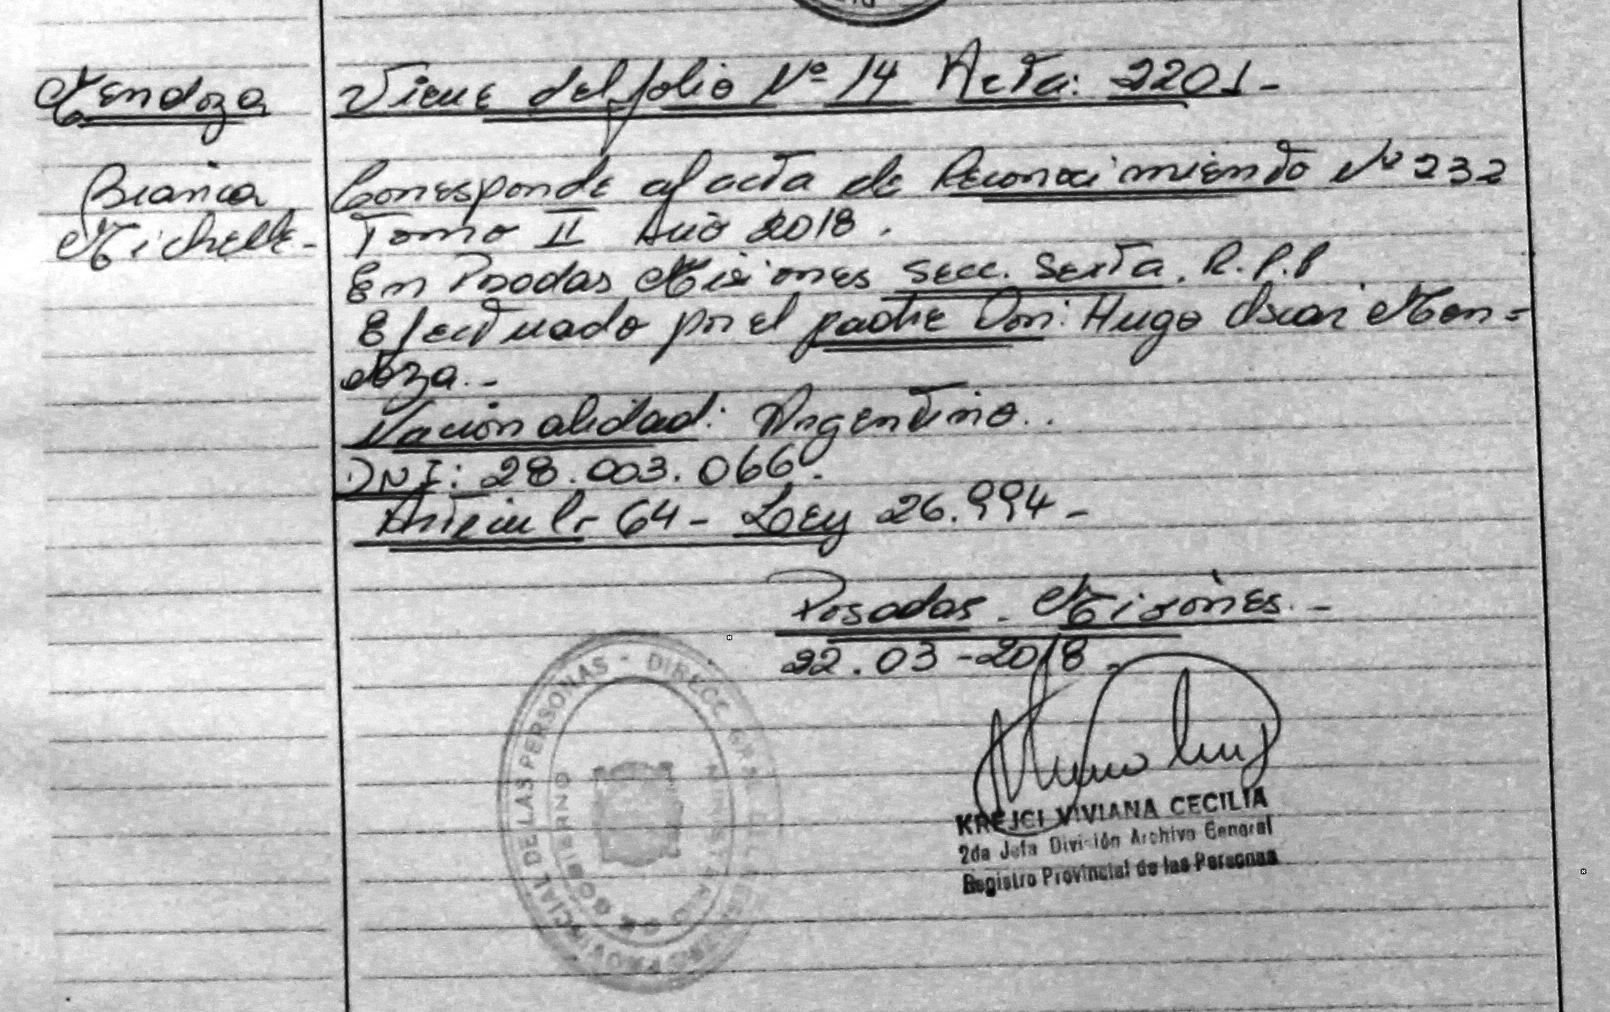 Mendoza
Bianca
Michelle.-
Viene del folio Nº 14 Acta: 2201.-
Corresponde al acta de Reconocimiento Nº 232
Tomo II Año 2018.
En Posadas Misiones Secc. Sexta. R.P.P
Efectuado por el padre Don: Hugo Oscar Men=
doza.-
Nacionalidad: Argentino..
DNI: 28.003.066.
Articulo 64 - Ley 26.994 -
Posadas - Misiones. -
22.03-2018.
KREJCI VIVIANA CECILIA
2da Jefa División Archivo General
Registro Provincial de las Personas
PROVINCIAL DE LAS PERSONAS - DIRECC. GRAL. DEL
MINISTERIO DE GOBIERNO